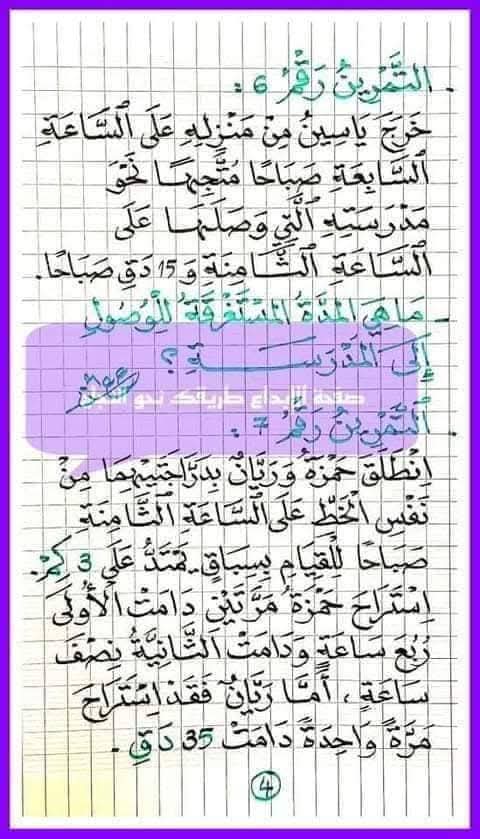 . التَّمْرِينُ رَقْمُ 6 :
خَرَجَ يَاسِينُ مِنْ مَنْزِلِهِ عَلَى السَّاعَةِ
السَّابِعَةِ صَبَاحًا مُتَّجِهًا نَحْوَ
مَدْرَسَتِهِ الَّتِي وَصَلَهَا عَلَى
السَّاعَةِ الثَّامِنَةِ وَ 15 دَقِ صَبَاحًا.
- مَا هِيَ المُدَّةُ المُسْتَغْرَقَةُ لِلْوُصُولِ
إِلَى المَدْرَسَــــــةِ ؟
صفحة الإبداع طريقك نحو النجاح
. التَّمْرِينُ رَقْمُ 7 :
اِنْطَلَقَ حَمْزَةُ وَرَيَّانُ بِدَرَّاجَتَيْهِمَا مِنْ
نَفْسِ الخَطِّ عَلَى السَّاعَةِ الثَّامِنَةِ
صَبَاحًا لِلْقِيَامِ بِسِبَاقٍ يَمْتَدُّ عَلَى 3 كِمْ.
اِسْتَرَاحَ حَمْزَةُ مَرَّتَيْنِ دَامَتْ الأُولَى
رُبُعَ سَاعَةٍ وَدَامَتْ الثَّانِيَّةُ نِصْفَ
سَاعَةٍ ، أَمَّا رَيَّانُ فَقَدْ اِسْتَرَاحَ
مَرَّةً وَاحِدَةً دَامَتْ 35 دَقِ .
4